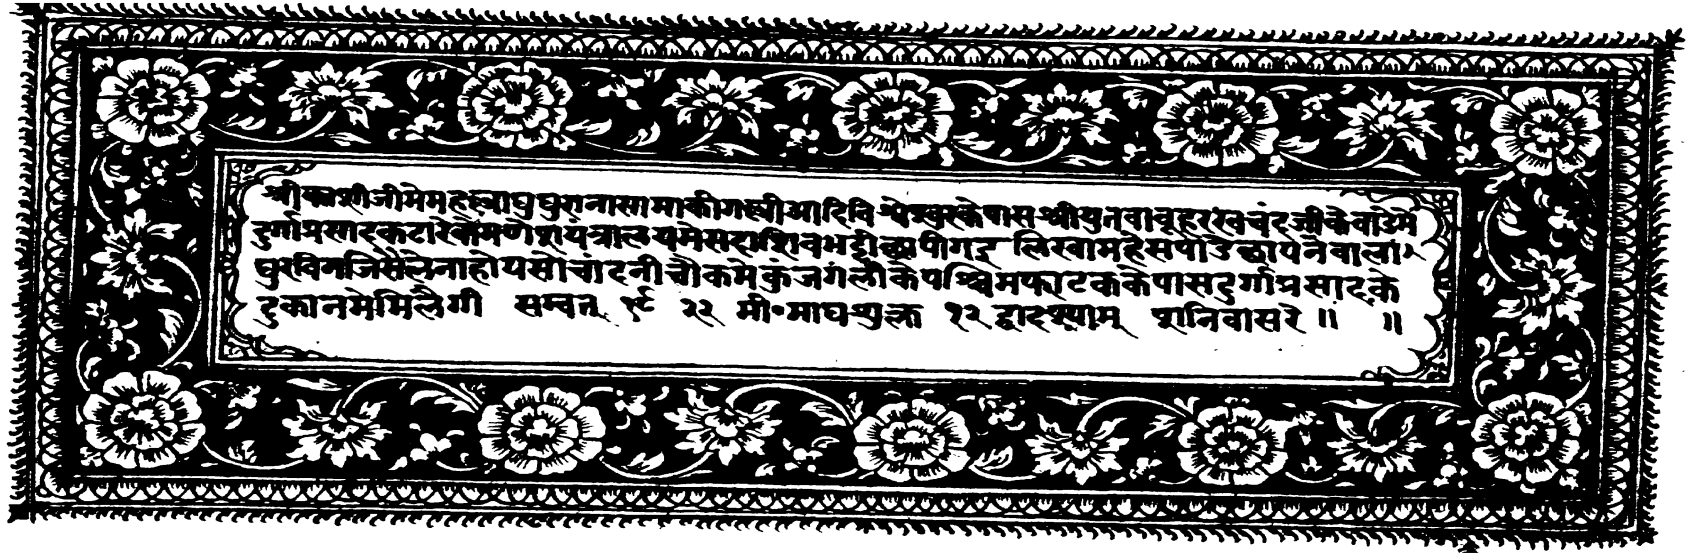 श्रीकाशीजीमेमहल्लाघुघुरानासामाकीगल्लीआदिविश्वेश्वरकेपासश्रीयुतबाबूहरखचंदजीकेबाडेमे
दुर्गाप्रसादकटारेकेगणेशयंत्रालयमेसदाशिवभट्टीछापीगइ लिखामहेसपांडे छापनेवाला
घुरबिनजिसेलेनाहोयसोचांदनीचौकमेकुंजगलीकेपश्चिमफाटककेपासदुर्गाप्रसादके
दुकानमेमिलैगी सम्वत् १९ २२ मी॰माघशुक्ल १२ द्वादश्याम् शनिवासरे॥ ॥